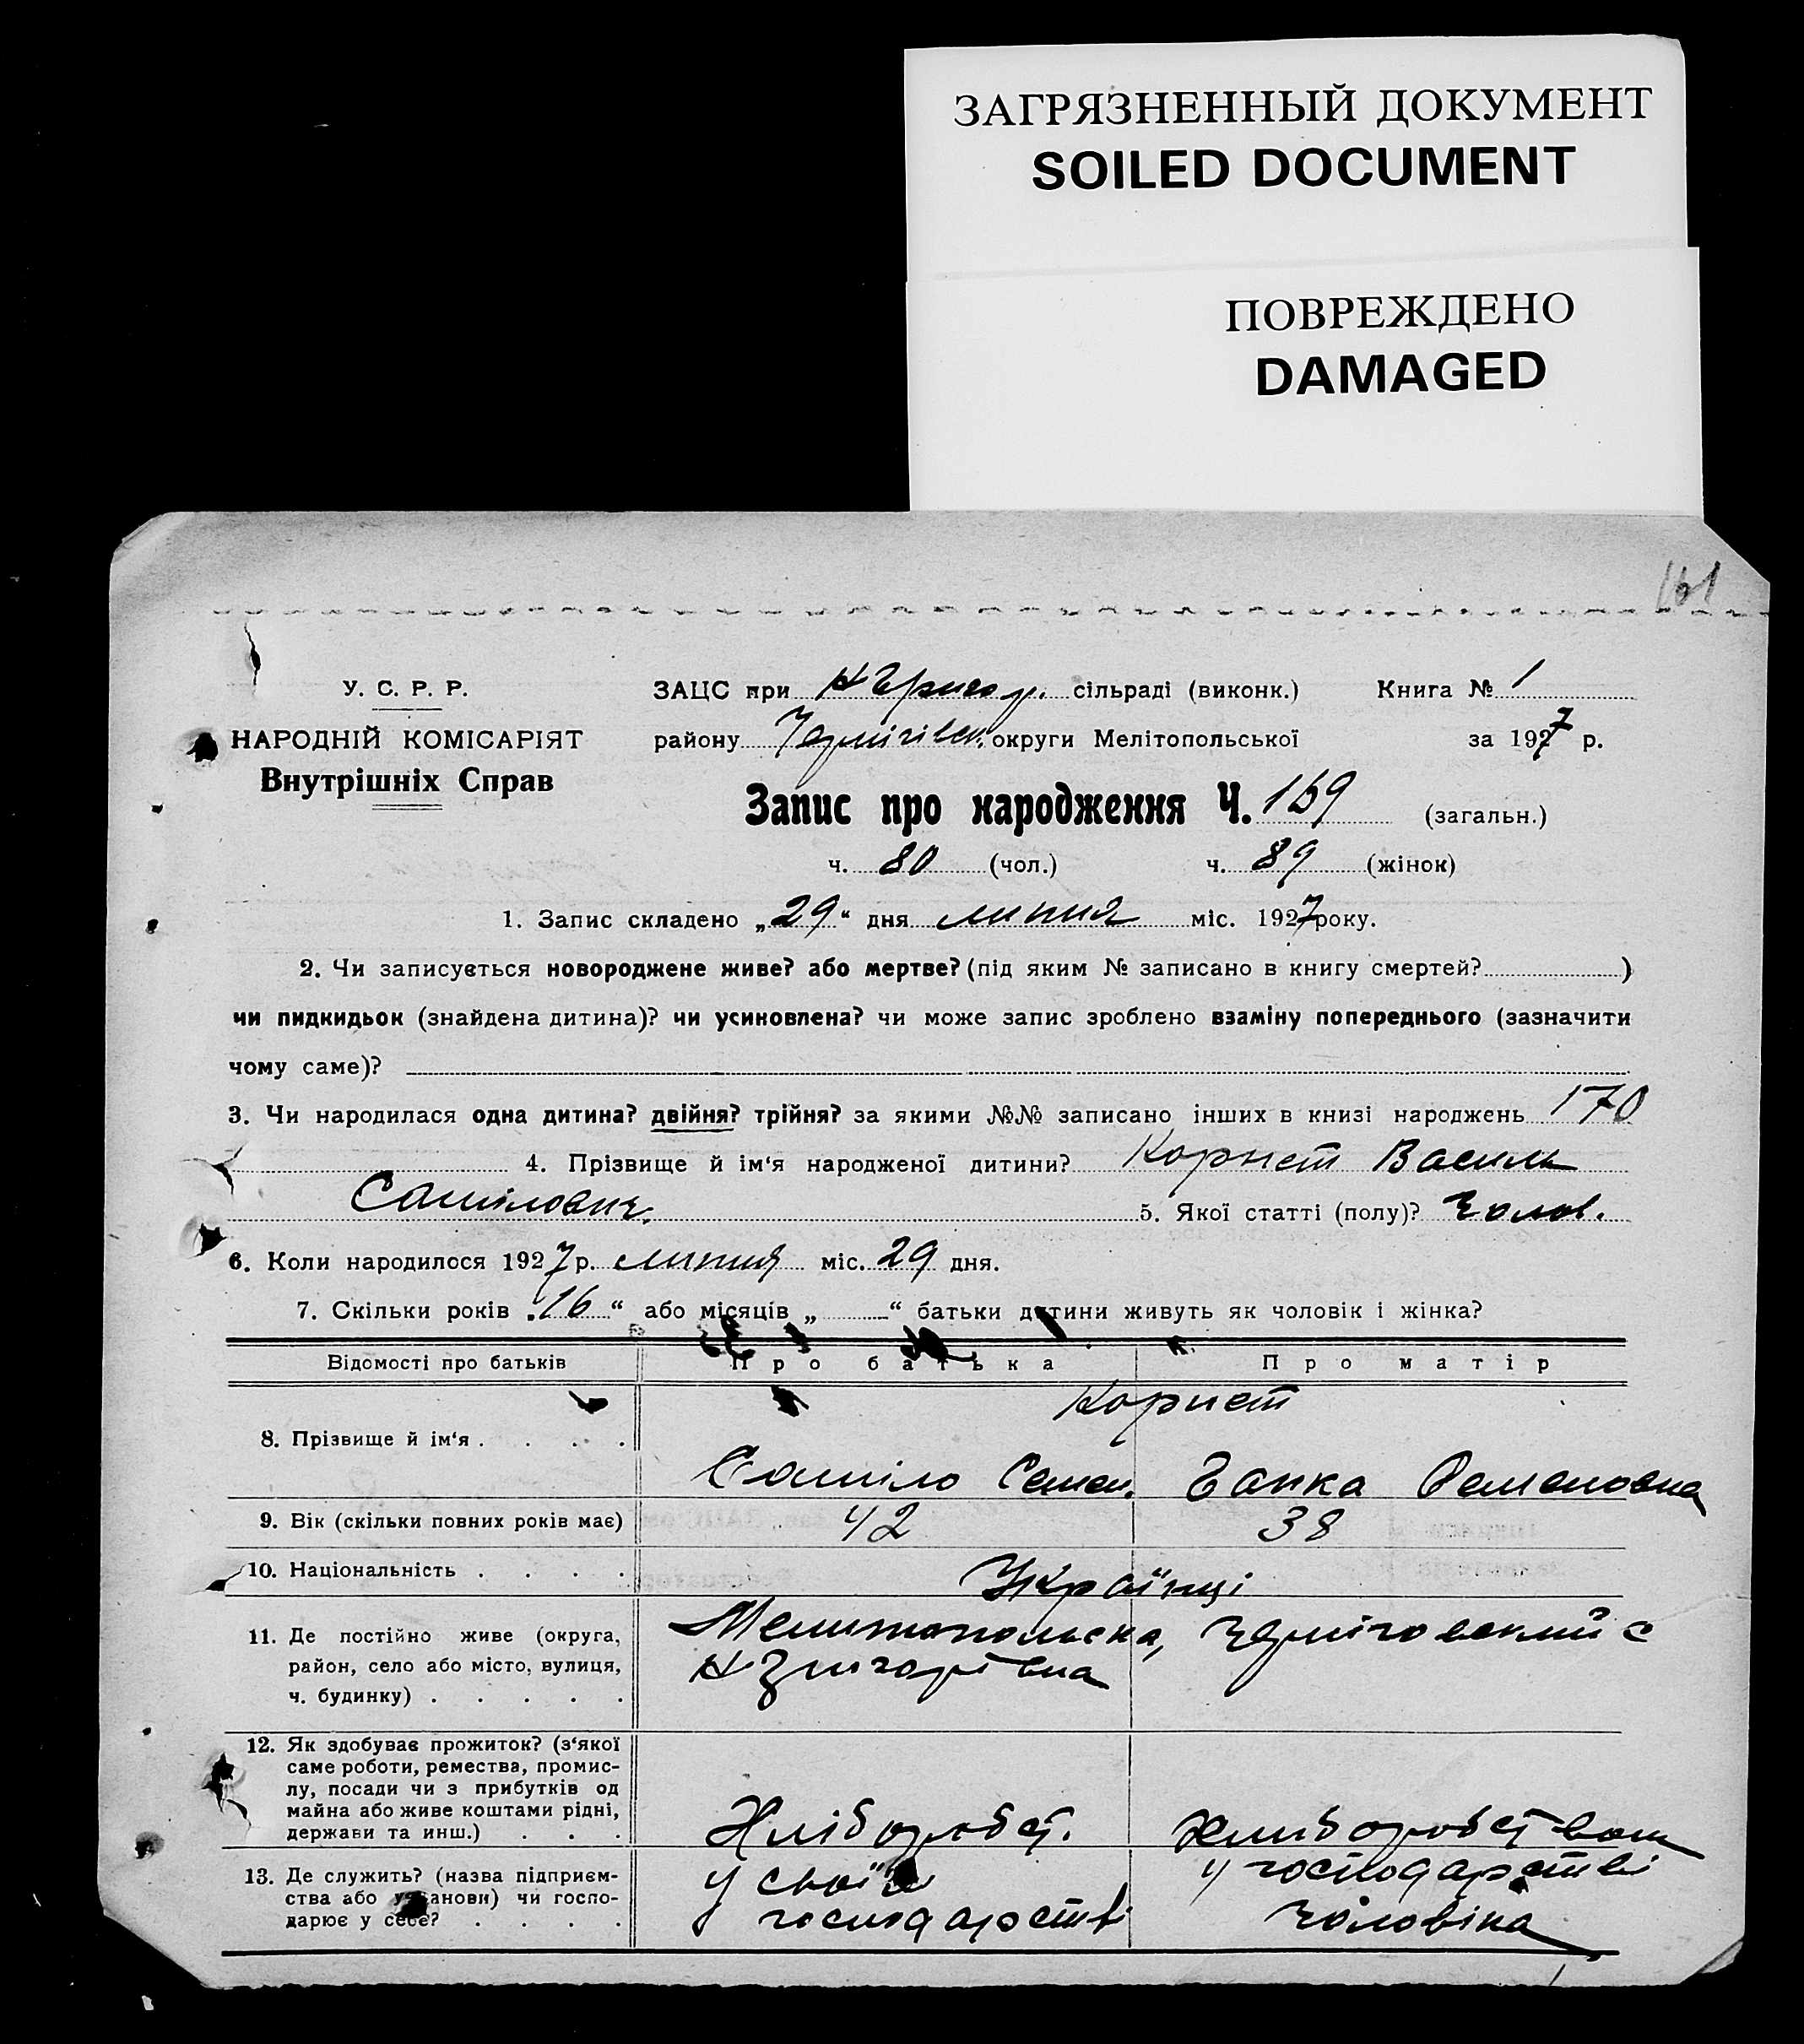 ЗАГРЯЗНЕННЫЙ ДОКУМЕНТ
SOILED DOCUMENT
ПОВРЕЖДЕНО
DAMAGED
161
У. С. Р. Р.
НАРОДНІЙ КОМІСАРІЯТ
Внутрішніх Справ
ЗАЦС при сільраді (виконк.) Книга № 1
району округи Мелітопольської за 1927 р.
Запис про народження Ч. 169 (загальн.)
ч. 80 (чол.) ч. 89 (жінок)
1. Запис складено „29“ дня липня міс. 1927 року.
2. Чи записується новороджене живе? або мертве? (під яким № записано в книгу смертей? )
чи пидкидьок (знайдена дитина)? чи усиновлена? чи може запис зроблено взаміну попереднього (зазначити
чому саме)?
3. Чи народилася одна дитина? двійня? трійня? за якими №№ записано інших в книзі народжень 170
4. Прізвище й ім‘я народженої дитини? Корнет Василь
Самілович. 5. Якої статті (полу)? Чолов.
6. Коли народилося 1927 р. липня міс. 29 дня.
7. Скільки років „16“ або місяців „ “ батьки дитини живуть як чоловік і жінка?
Відомості про батьків Про батька Про матір
Корнет
8. Прізвище й ім‘я . . . .
Саміло Семен. Ганка Семеновна
9. Вік (скільки повних років має) 42 38
10. Національність . . . . Українці
11. Де постійно живе (округа, район, село або місто, вулиця, ч. будинку) . . . . .
Мелитопольска, Черніговский с
12. Як здобуває прожиток? (з‘якої
саме роботи, ремества, промис-
лу, посади чи з прибутків од
майна або живе коштами рідні,
держави та инш.) . . .
Хліборобст. Хлиборобством
13. Де служить? (назва підприєм-
ства або установи) чи госпо-
дарює у себе? . . . .
у своїм у господарстві
господарстві чоловіка